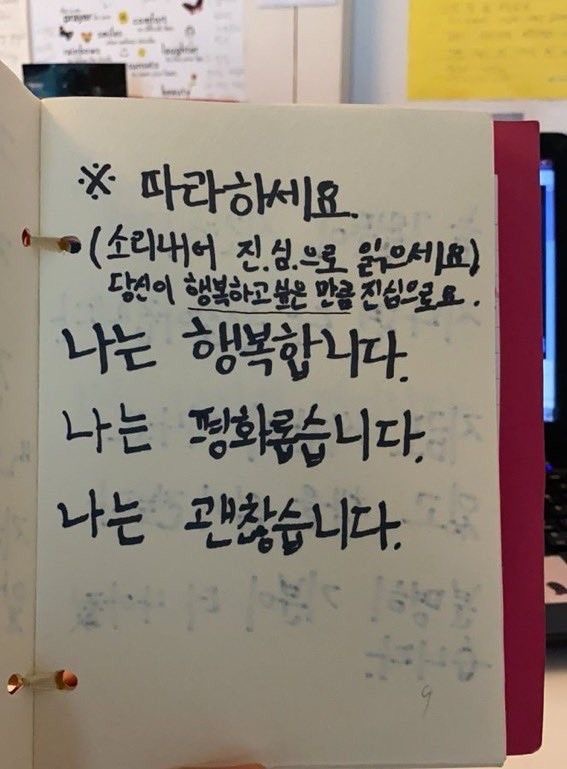 prayer comfort
smiles
laughter
rainbows
sunsets
beauty
※ 따라하세요.
(소리내어 진.심.으로 읽으세요)
당신이 행복하고 싶은 만큼 진심으로요.
나는 행복합니다.
나는 평화롭습니다.
나는 괜찮습니다.
9